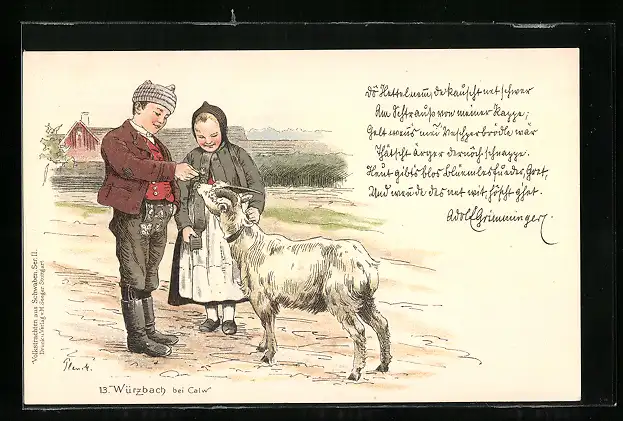 Dô Hettel nem, de kauscht net schwer
Am Schtrauß von meiner Kappe;
Gelt wenns mei Veschperbrödle wär
Thätscht ärger dernôch schnappe.
Heut gibts blos Blüemles fueder,
Und wenn de des net wit, höscht ghet.
Adolf Grimminger.
Volkstrachten aus Schwaben, Ser. II.
Druck u. Verlag v. H. Seeger Stuttgart
13. "Würzbach bei Calw"